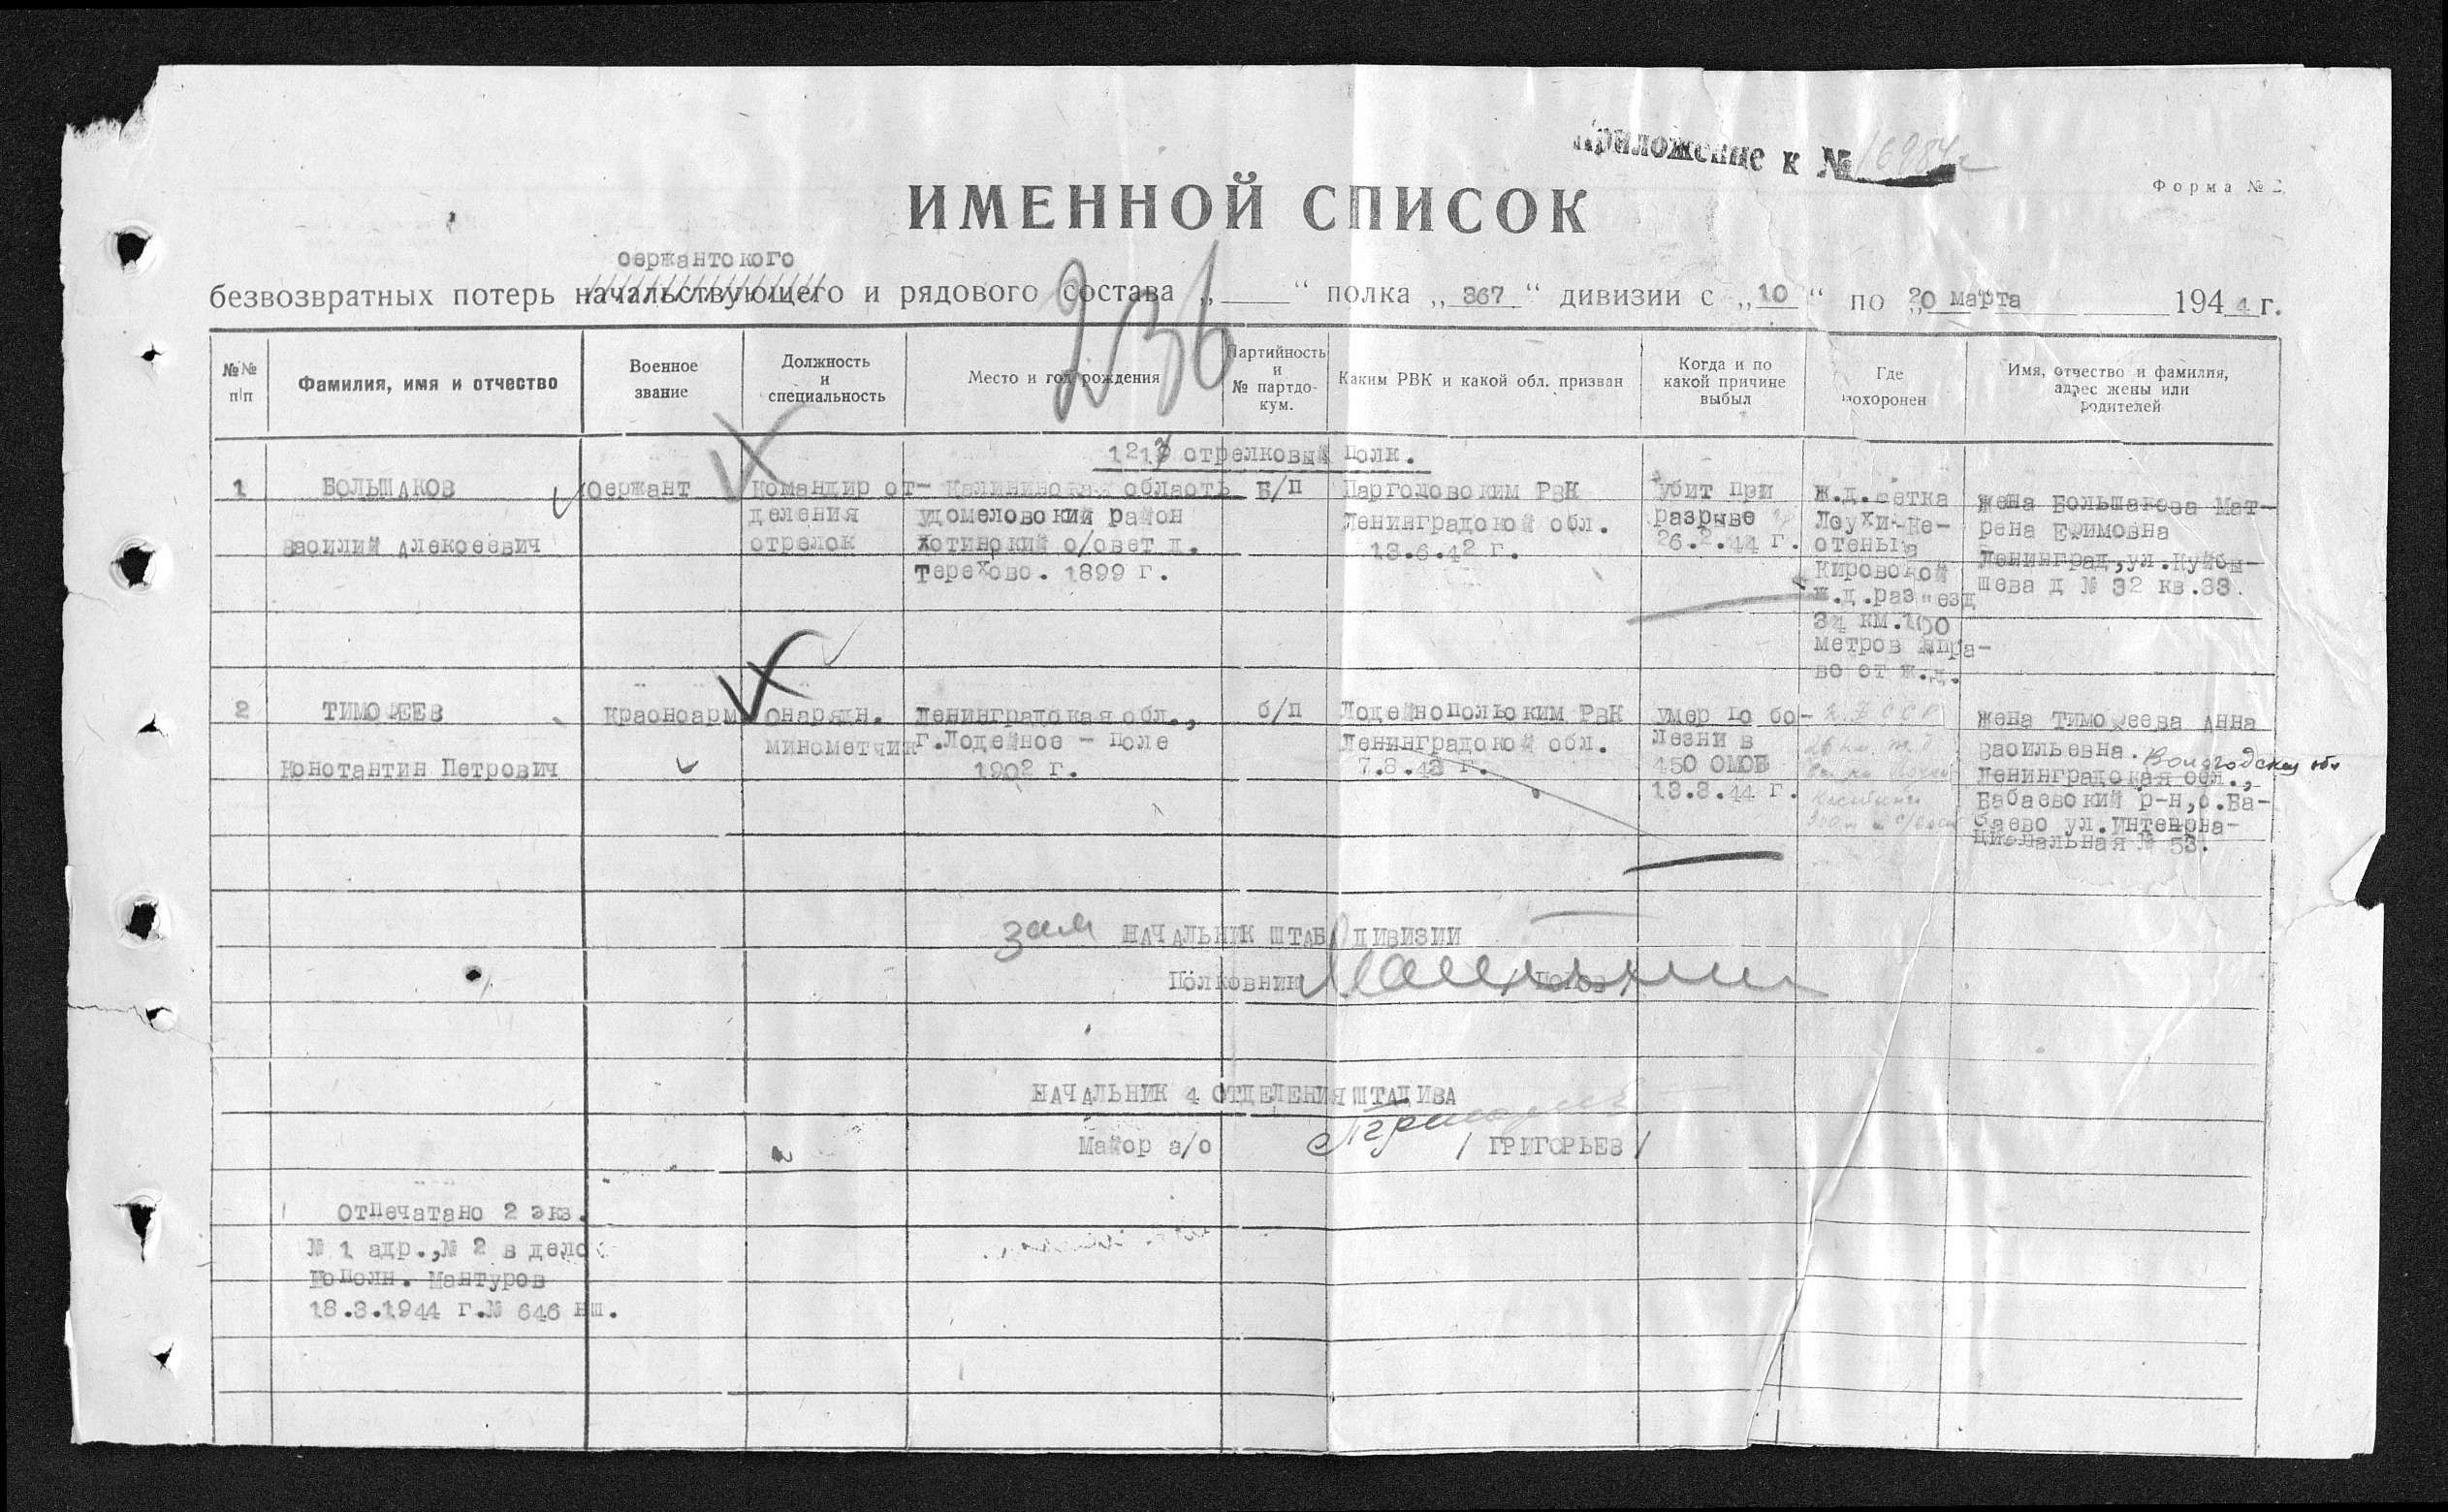 Приложение к № 16984с
Форма № 2
ИМЕННОЙ СПИСОК
сержантского
безвозвратных потерь начальствующего и рядового состава „ “ полка „ 367 “ дивизии с „ 10 “ по „20 марта 1944 г.
236
№№ п/п
Фамилия, имя и отчество
Военное звание
Должность и специальность
Место и год рождения
Партийность и № партдокум.
Каким РВК и какой обл. призван
Когда и по какой причине выбыл
Где похоронен
Имя, отчество и фамилия, адрес жены или родителей
1217 отрелковый полк.
1
БОЛЬШАКОВ
Василий Алексеевич
сержант
Командир от-
деления
стрелок
Калининская область
Удомеловский район
Хотинский с/совет д.
Терехово. 1899 г.
Б/П
Парголовским РВК
Ленинградской обл.
13.6.42 г.
убит при
разрыве
26.2.44 г.
ж.д.ветка
Лоухи-Ке-
стеньга
Кировской
ж.д.раз"езд
34 км.100
метров впра-
во от ж.д.
жена Большакова Мат-
рена Ефимовна
Ленинград,ул.Куйбы-
шева д № 32 кв.33.
2
ТИМОФЕЕВ
Константин Петрович
Красноарм
снарядн.
минометчик
Ленинградская обл.,
г.Лодейное - Поле
1902 г.
б/п
Лодейнопольским РВК
Ленинградской обл.
7.8.43 г.
умер по бо-
лезни в
450 ОМСБ
13.3.44 г.
жена Тимофеева Анна
Васильевна. Вологодская обл
Ленинградская обл.,
Бабаевский р-н,с.Ба-
баево ул.Интерна-
циональная № 53.
зам НАЧАЛЬНИК ШТАБА ДИВИЗИИ
Полковник /Попов/
НАЧАЛЬНИК 4 ОТДЕЛЕНИЯ ШТАДИВА
Майор а/с / ГРИГОРЬЕВ /
Отпечатано 2 экз.
№ 1 адр.,№ 2 в дело
Исполн. Мантуров
18.3.1944 г.№ 646 нш.